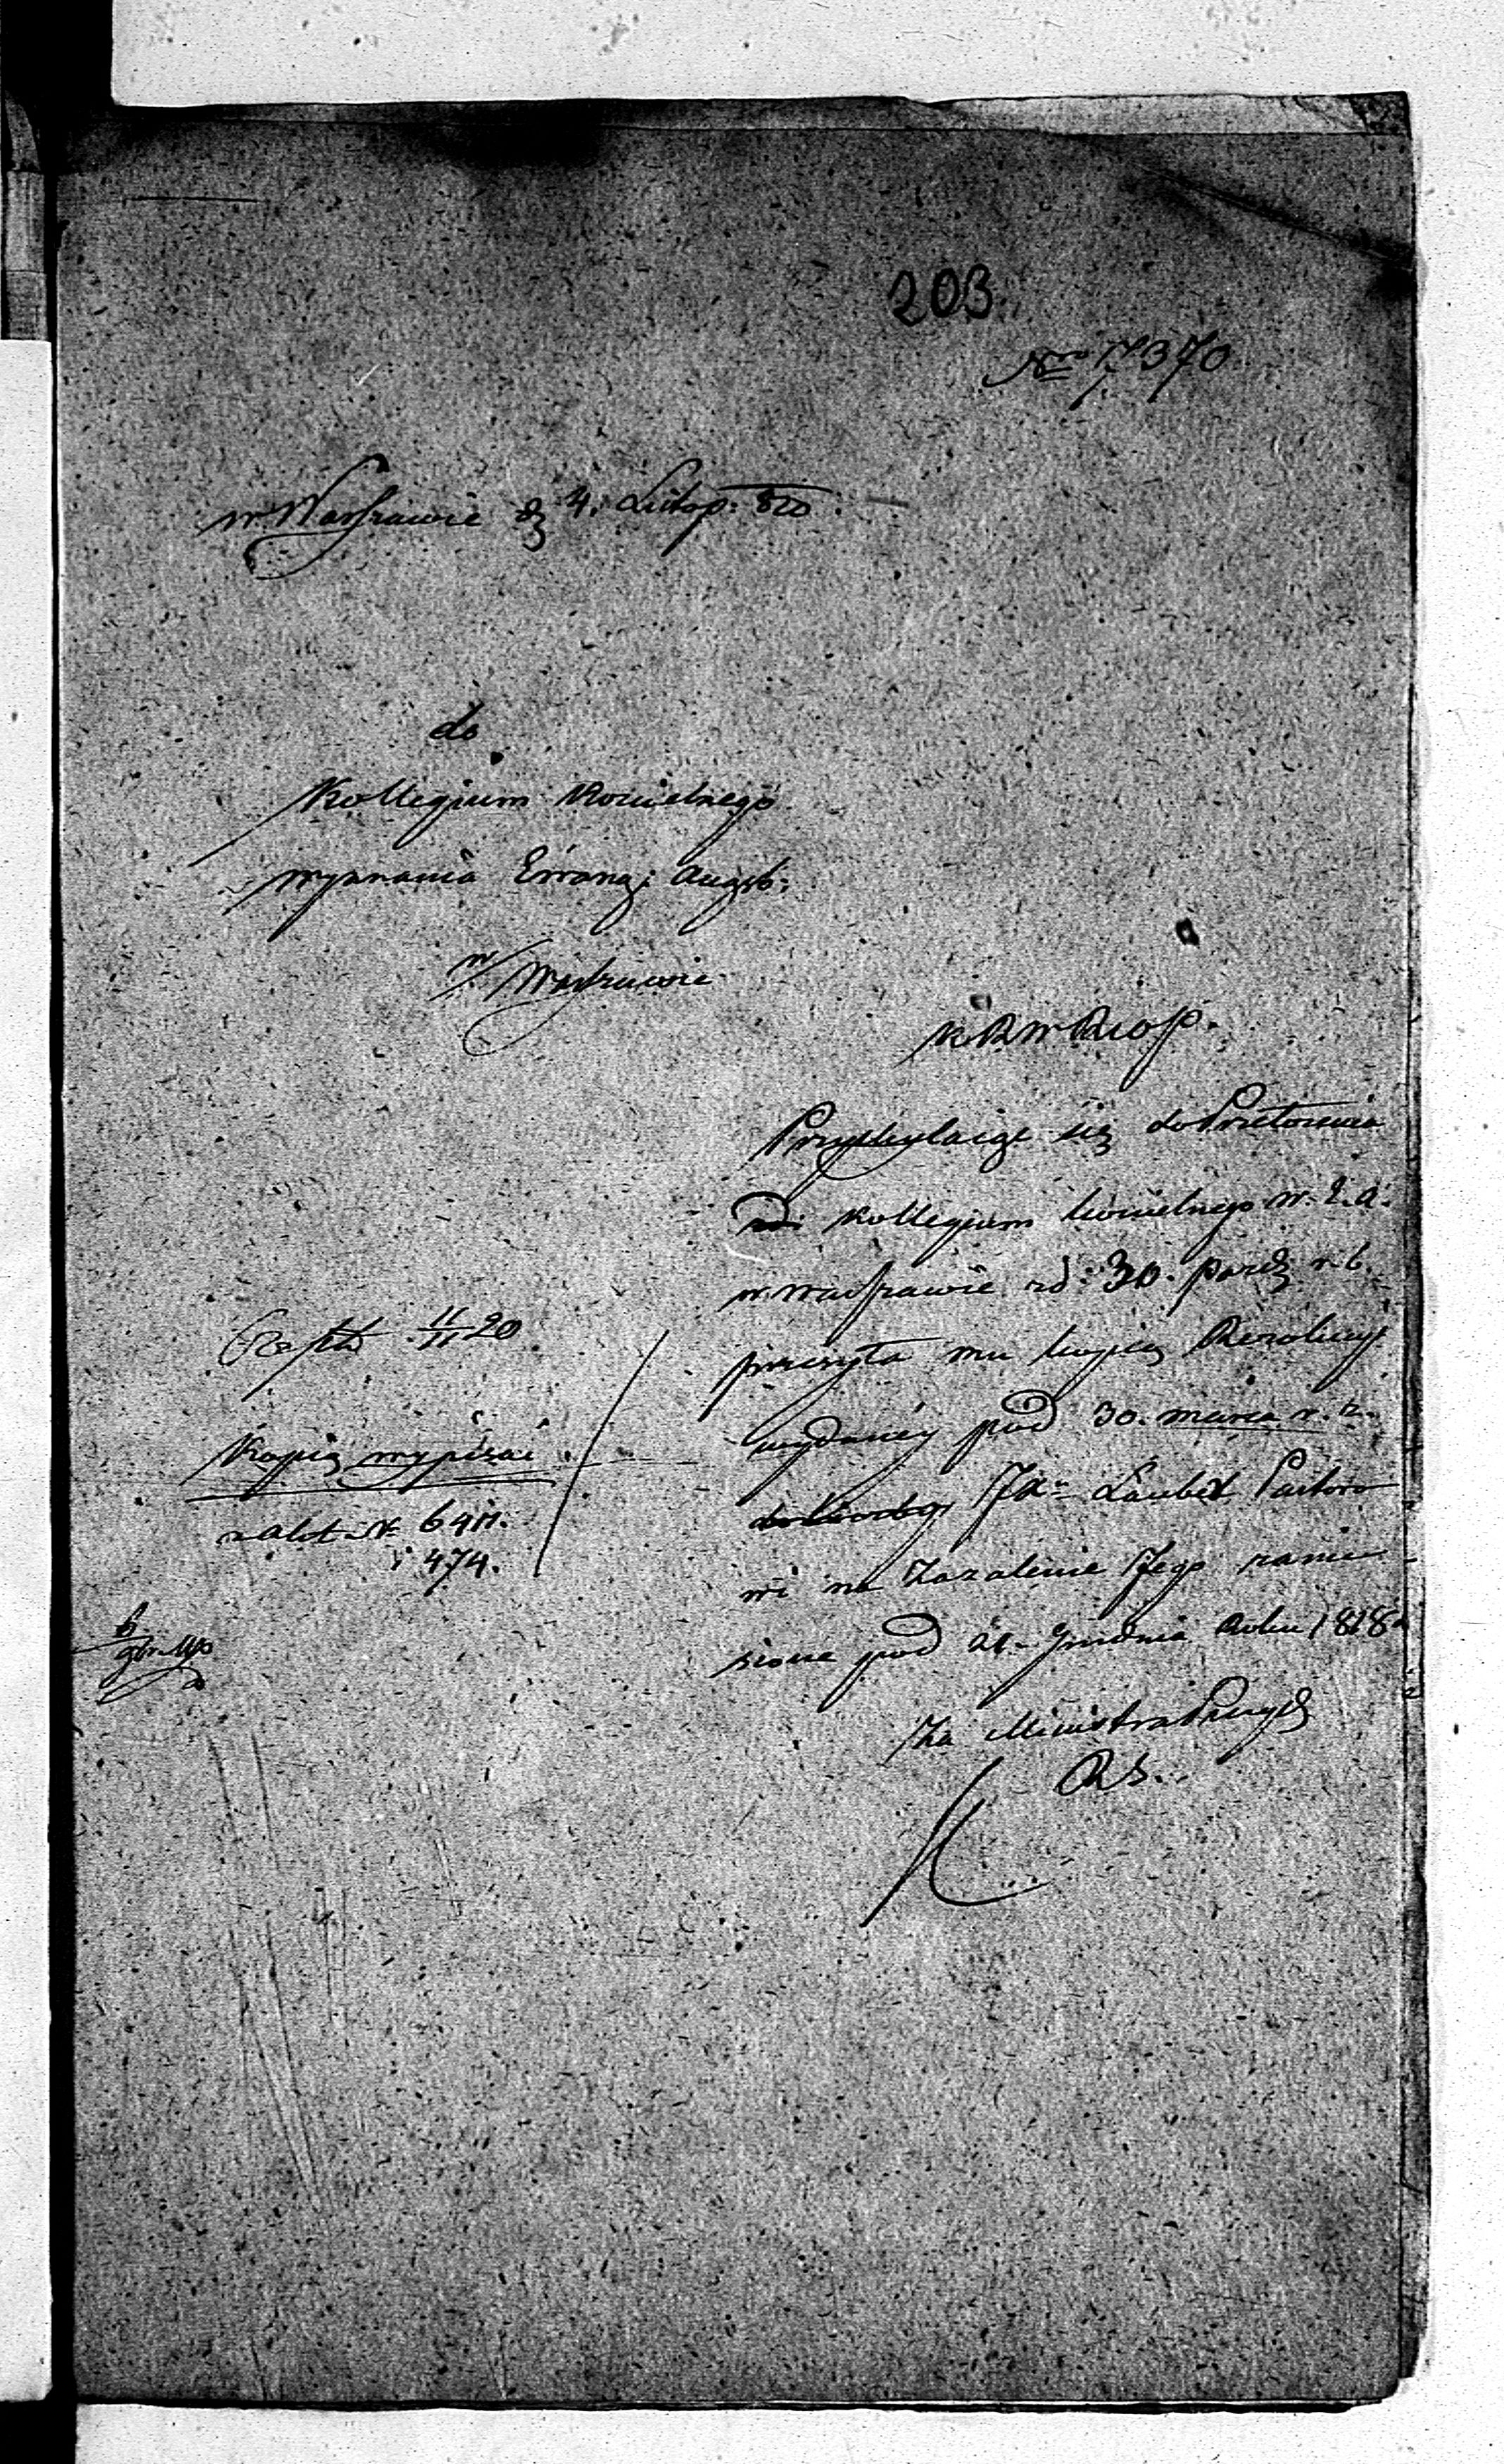 203.
Nro 7370
w Warszawie d. 4. Listop: 820.
do
Kollegium Kościelnego
wyznania Ewang: Augsb:
w Warszawie
K R W R i O P.
Przychylaiąc się do Przełożenia
Kollegium kościelnego W. E. A.
w Warszawie z d: 30. Paźdz r. b.
przesyła mu kopię Rezolucyi
wydaney pod 30. marca r. z.
JX Lauber Pastoro
wi na Zażalenie Jego zanie
sione pod 21. Grudnia Roku 1818.
Za Ministra Prezyd
RS.
11/11 20
Kopię wypisać
z alot. N. 6411.
i 474.